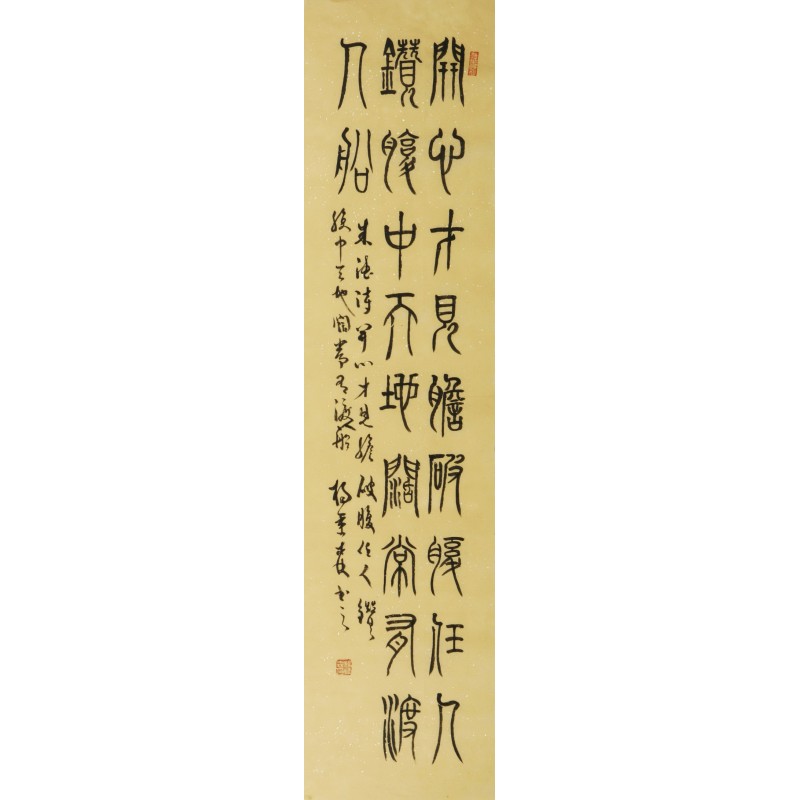 開心才見膽破腹任人
鑽腹中天地闊常有渡
人船
朱德詩開心才見膽破腹任人鑽
腹中天地闊常有渡人船 楊 書之